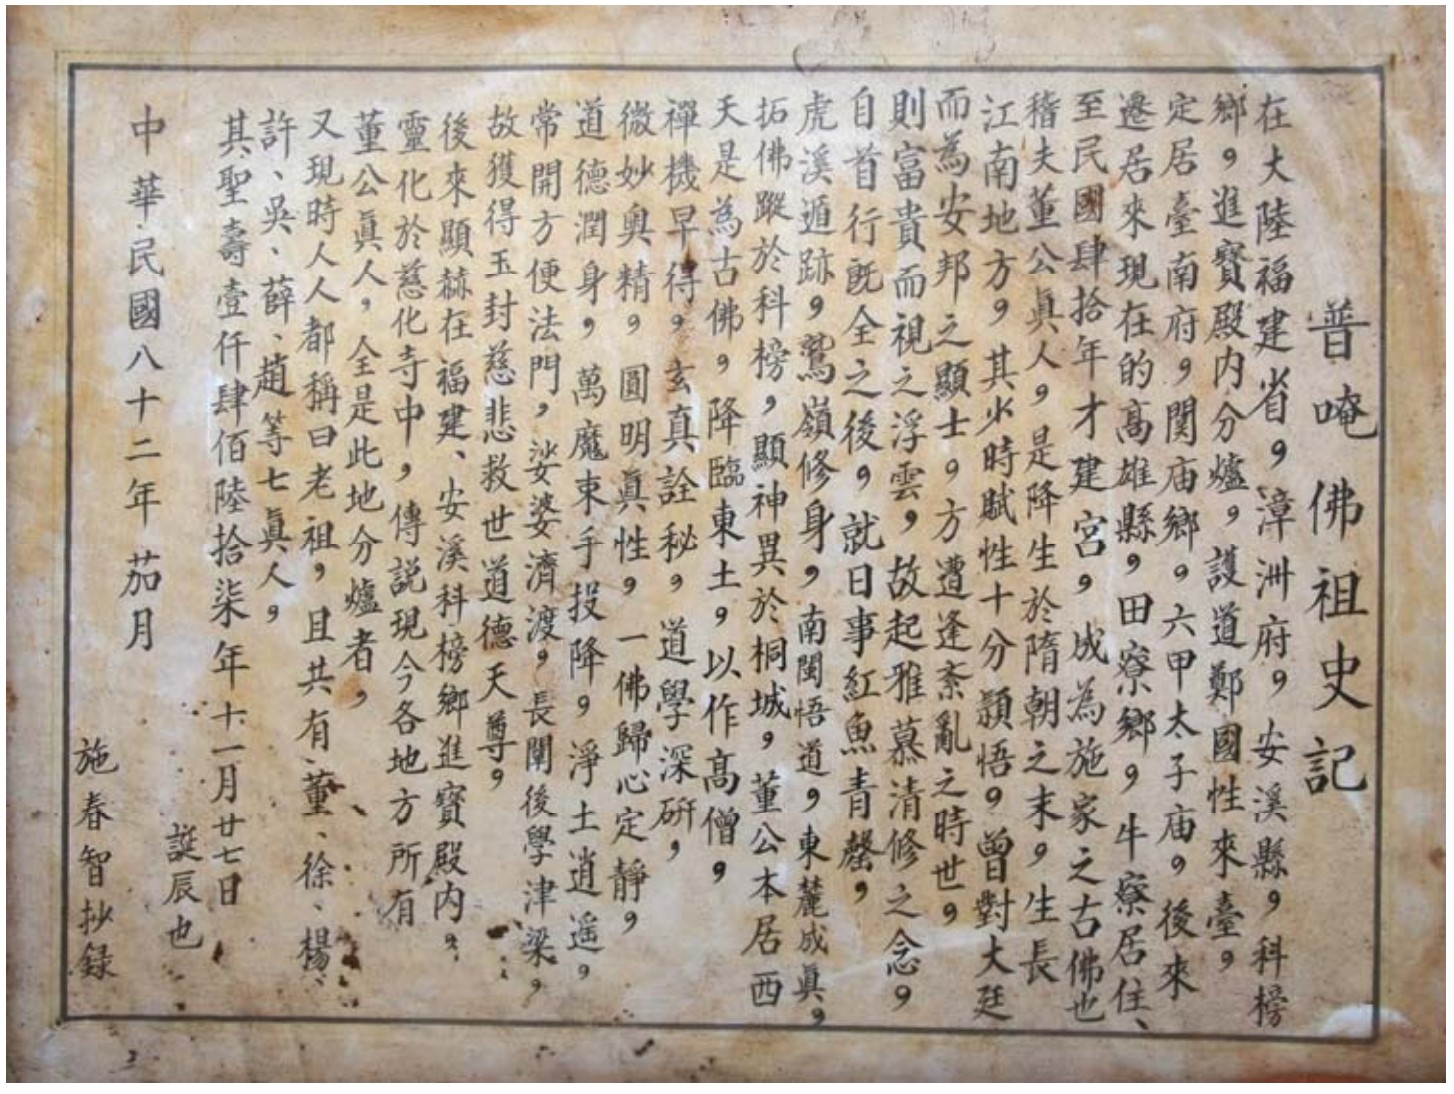 普唵佛祖史記
在大陸福建省，漳洲府，安溪縣，科榜
鄉，進寶殿内分爐，護道鄭國性來臺，
定居臺南府，関庙鄉。六甲太子庙，後來
遷居來現在的高雄縣，田寮鄉，牛寮居住、
至民國肆拾年才建宮，成為施家之古佛也
稽夫董公眞人，是降生於隋朝之末，生長
江南地方，其少時賦性十分頴悟，曾對大廷
而為安邦之顯士，方遭逢紊亂之時世，
則富貴而視之浮雲，故起雅慕清修之念，
自首行旣全之後，就日事紅魚青罄，
虎溪遁跡，鷲嶺修身，南閩悟道，東麓成眞，
拓佛蹤於科榜，顯神異於桐城，董公本居西
天是為古佛，降臨東土，以作高僧，
禪機早得，玄真詮秘，道學深研，
微妙奥精，圓明眞性，一佛歸心定靜，
道德潤身，萬魔束手投降，淨土逍遥，
常開方便法門，娑婆濟渡，長闡後學津梁，
故獲得玉封慈悲救世道德天尊，
後來顯赫在福建、安溪科榜鄉進寶殿内，
靈化於慈化寺中，傳説現今各地方所有
董公眞人，全是此地分爐者，
又現時人人都稱曰老祖，且共有董、徐、楊、
許、吳、薛、趙等七眞人，
其聖壽壹仟肆佰陸拾柒年十一月廿七日
誕辰也
中華民國八十二年 茄月
施春智抄録